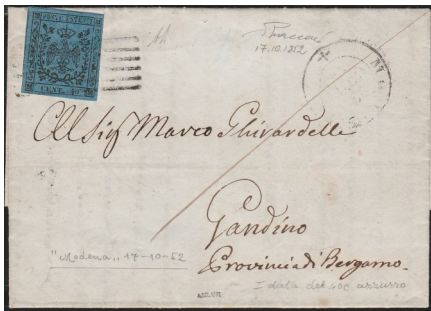 POSTE ESTENSI
CENT. 40
17.10.1852
M
Al Sig Marco Ghirardelli
Gandino
Provincia di Bergamo.
"Modena" 17-10-52
I data del 40c azzurro